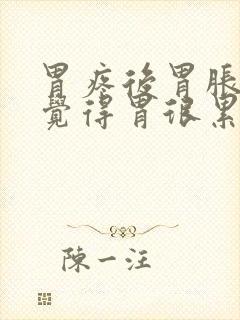 胃疼後胃脹
覺得胃很累
陳一汪